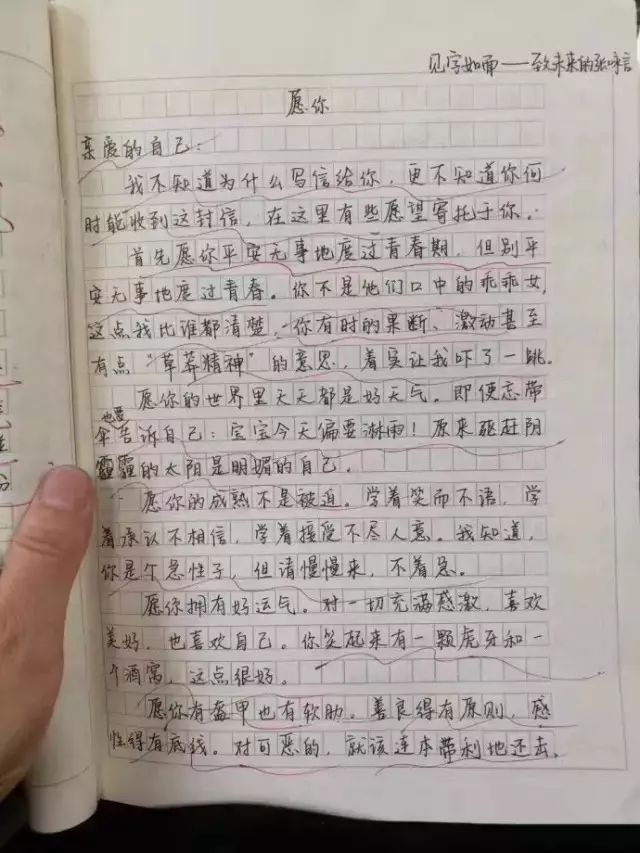 见字如面——致未来的张咏言
愿你
亲爱的自己：
我不知道为什么写信给你，更不知道你何
时能收到这封信，在这里有些愿望寄托于你。
首先愿你平安无事地度过青春期，但别平
安无事地度过青春。你不是他们口中的乖乖女，
这点我比谁都清楚，你有时的果断、激动甚至
有点“草莽精神”的意思，着实让我吓了一跳。
愿你的世界里天天都是好天气。即便忘带
伞也要告诉自己：宝宝今天偏要淋雨！原来驱赶阴
霾的太阳是明媚的自己。
愿你的成熟不是被迫。学着笑而不语，学
着承认不相信，学着接受不尽人意。我知道，
你是个急性子，但请慢慢来，不着急。
愿你拥有好运气。对一切充满感激，喜欢
美好，也喜欢自己。你笑起来有一颗虎牙和一
个酒窝，这点很好。
愿你有盔甲也有软肋。善良得有原则，感
性得有底线。对可恶的，就该连本带利地还去，